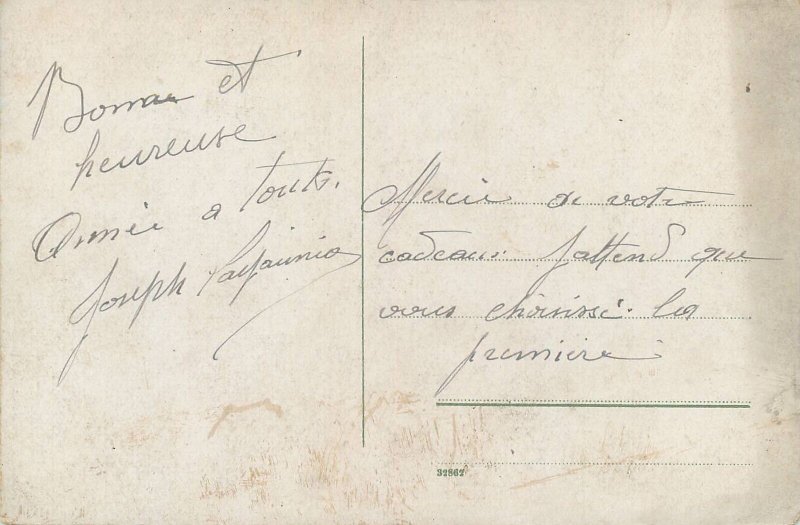 Bonne et
heureuse
Année a touts.
Joseph
Mercie de votre
cadeau: Jattend que
vous choisissé. la
première
32867